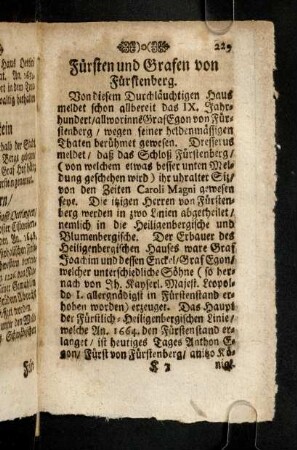 229
Fürsten und Grafen von
Fürstenberg.
Von diesem Durchläuchtigen Haus
meldet schon allbereit das IX. Jahr-
hundert/allworinnē Graf Egon von Für-
stenberg / wegen seiner heldenmässigen
Thaten berühmet gewesen. Dresserus
meldet / daß das Schloß Fürstenberg /
( von welchem etwas besser unten Mel-
dung geschehen wird ) ihr uhralter Sitz/
von den Zeiten Caroli Magni gewesen
seye. Die itzigen Herren von Fürsten-
berg werden in zwo Linien abgetheilet /
nemlich in die Heiligenbergische und
Blumenbergische. Der Erbauer des
Heiligenbergischen Hauses ware Graf
Joachim und dessen Enckel/ Graf Egon/
welcher unterschiedliche Söhne ( so her-
nach von Jh. Kayserl. Majest. Leopol-
do I. allergnädigst in Fürstenstand er-
hoben worden) erzeuget. Das Haupt
der Fürstlich-Heiligenbergischen Linie/
welche An. 1664. den Fürstenstand er-
langet / ist heutiges Tages Anthon E-
gon/ Fürst von Fürstenberg/ anitzo Kö-
nigl.